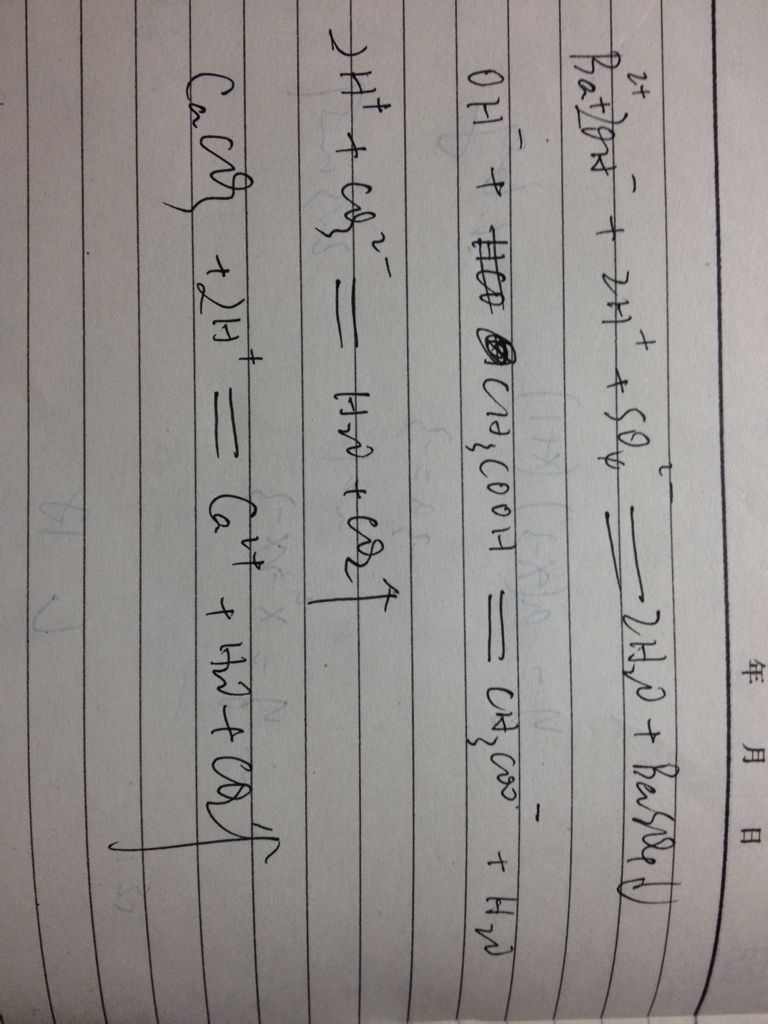 年 月 日
Ba²⁺+2OH⁻ + 2H⁺ + SO₄²⁻ = 2H₂O + BaSO₄↓
OH⁻ + CH₃COOH = CH₃COO⁻ + H₂O
2H⁺ + CO₃²⁻ = H₂O + CO₂↑
CaCO₃ + 2H⁺ = Ca²⁺ + H₂O + CO₂↑